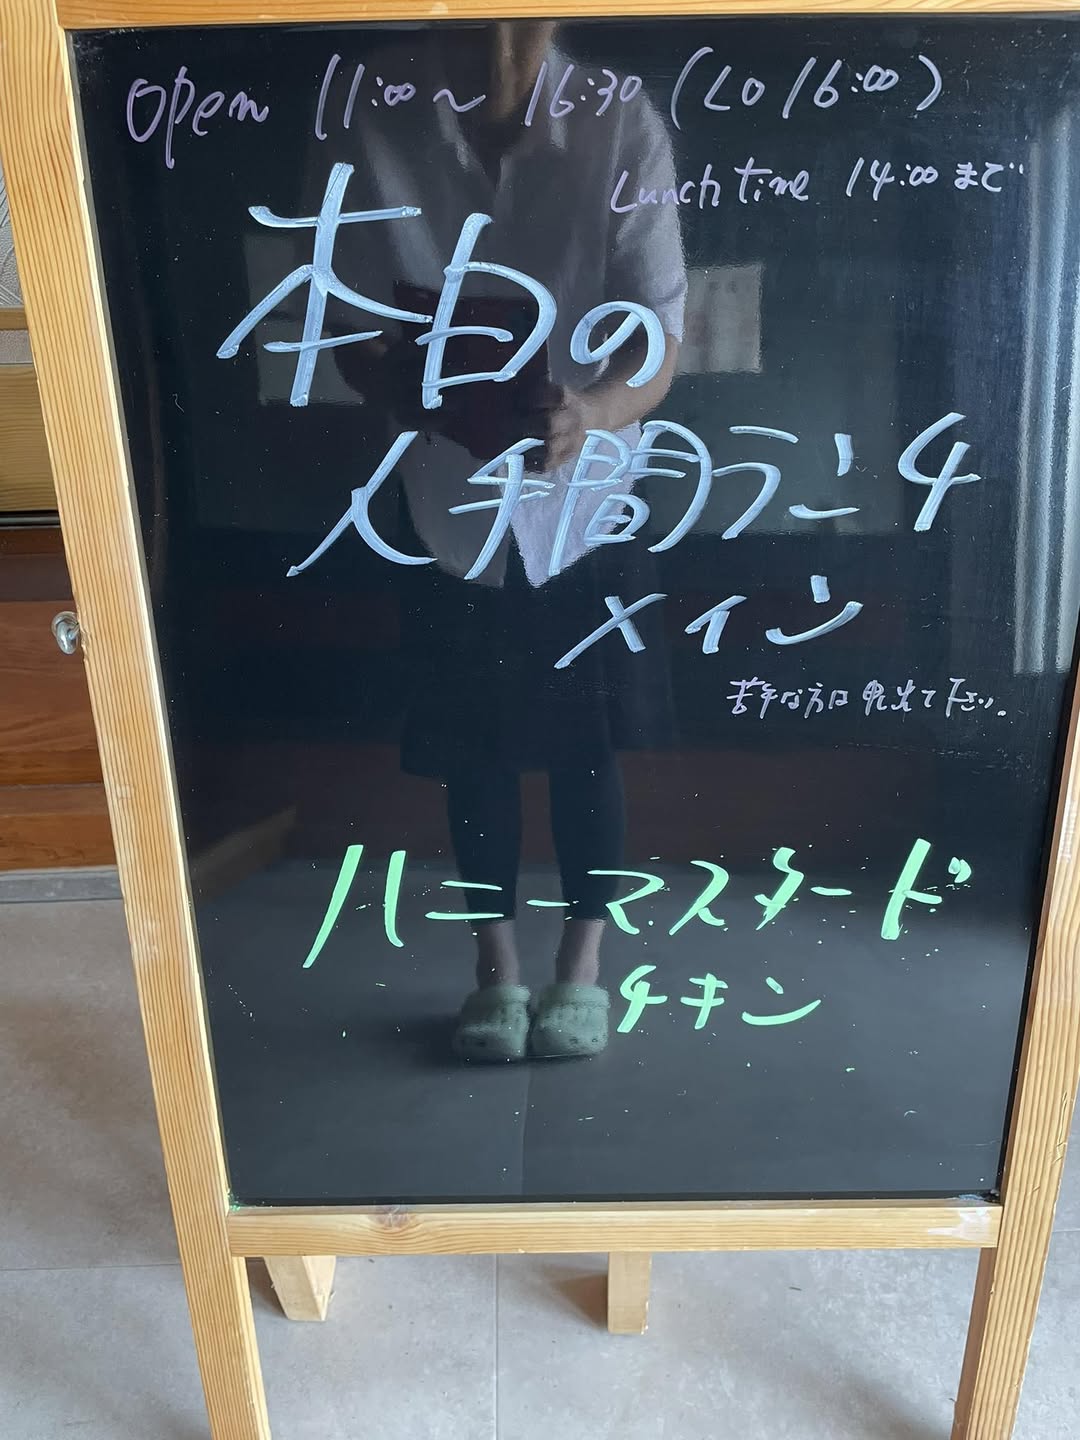 Open 11:00～16:30 (LO 16:00)
Lunch time 14:00まで
本日の
人手間ランチ
メイン
苦手な方は申し出て下さい。
ハニーマスタード
チキン